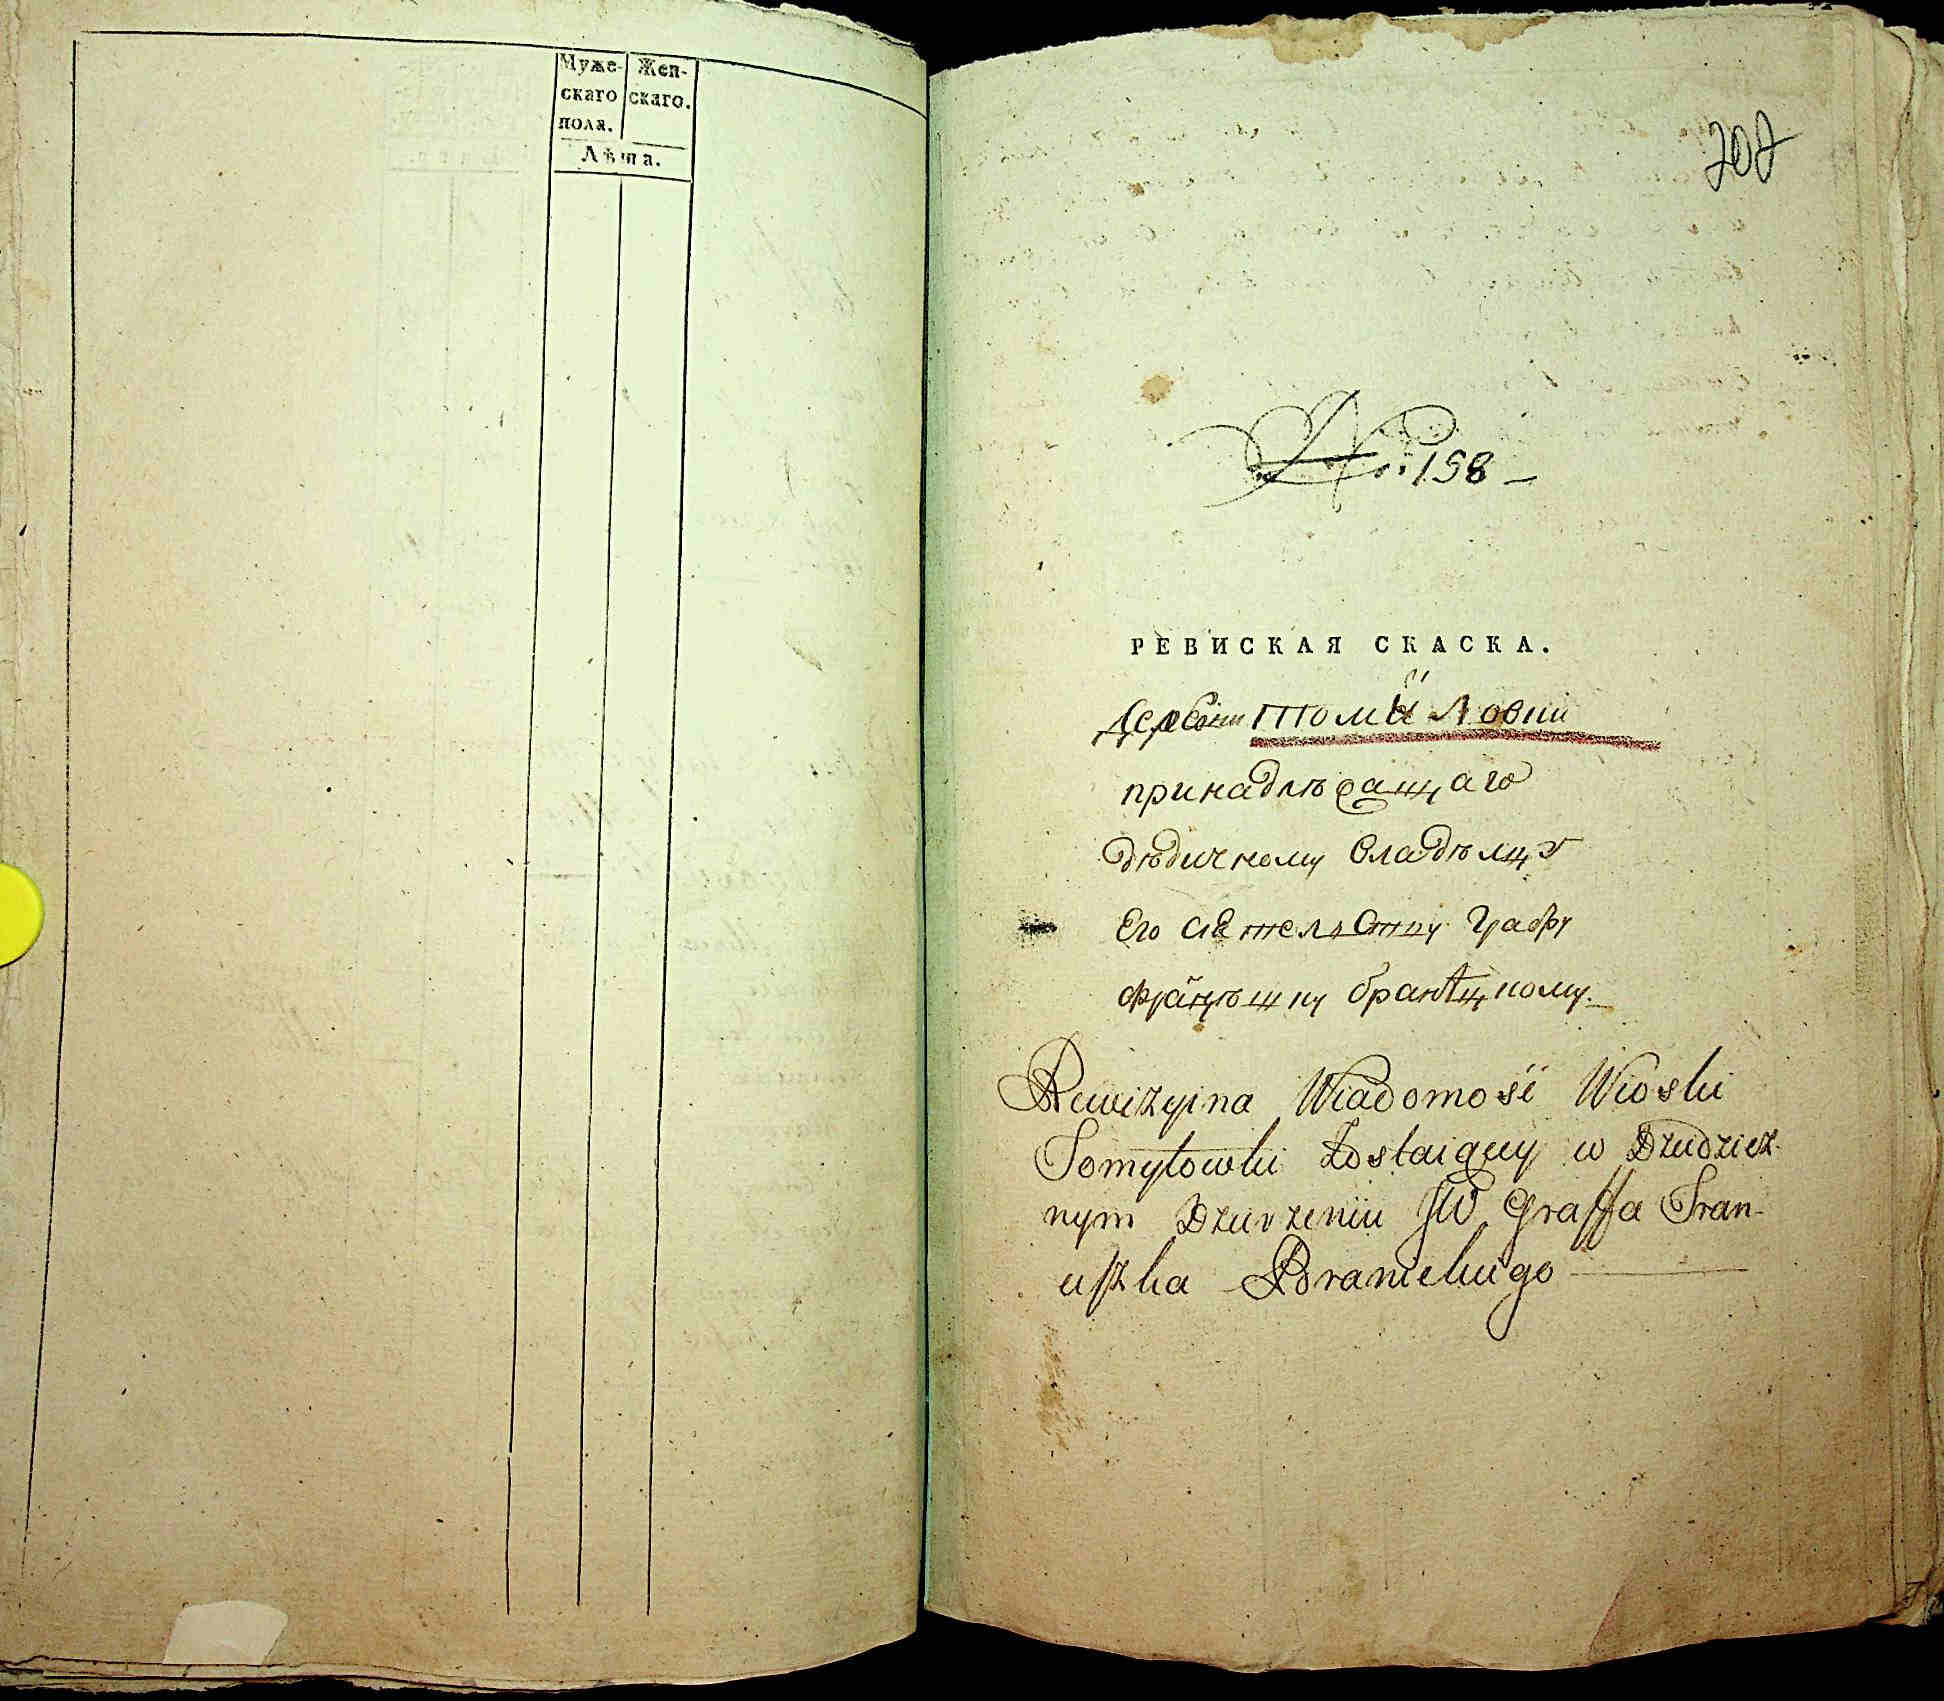 Муже- Жен-
скаго скаго.
пола.
Лѣта.
202
No: 158
РЕВИСКАЯ СКАСКА.
Деревни Томиловки
принадлѣжащаго
дѣдичному владѣлцу
Его Сіятелству Графу
Францѣшку Браницкому.
Rewizyina Wiadomość Wioski
Tomyłowki Zostaiącey w Dziedzicz-
nym Dzierżeniu JW Graffa Fran-
ciszka Branickiego